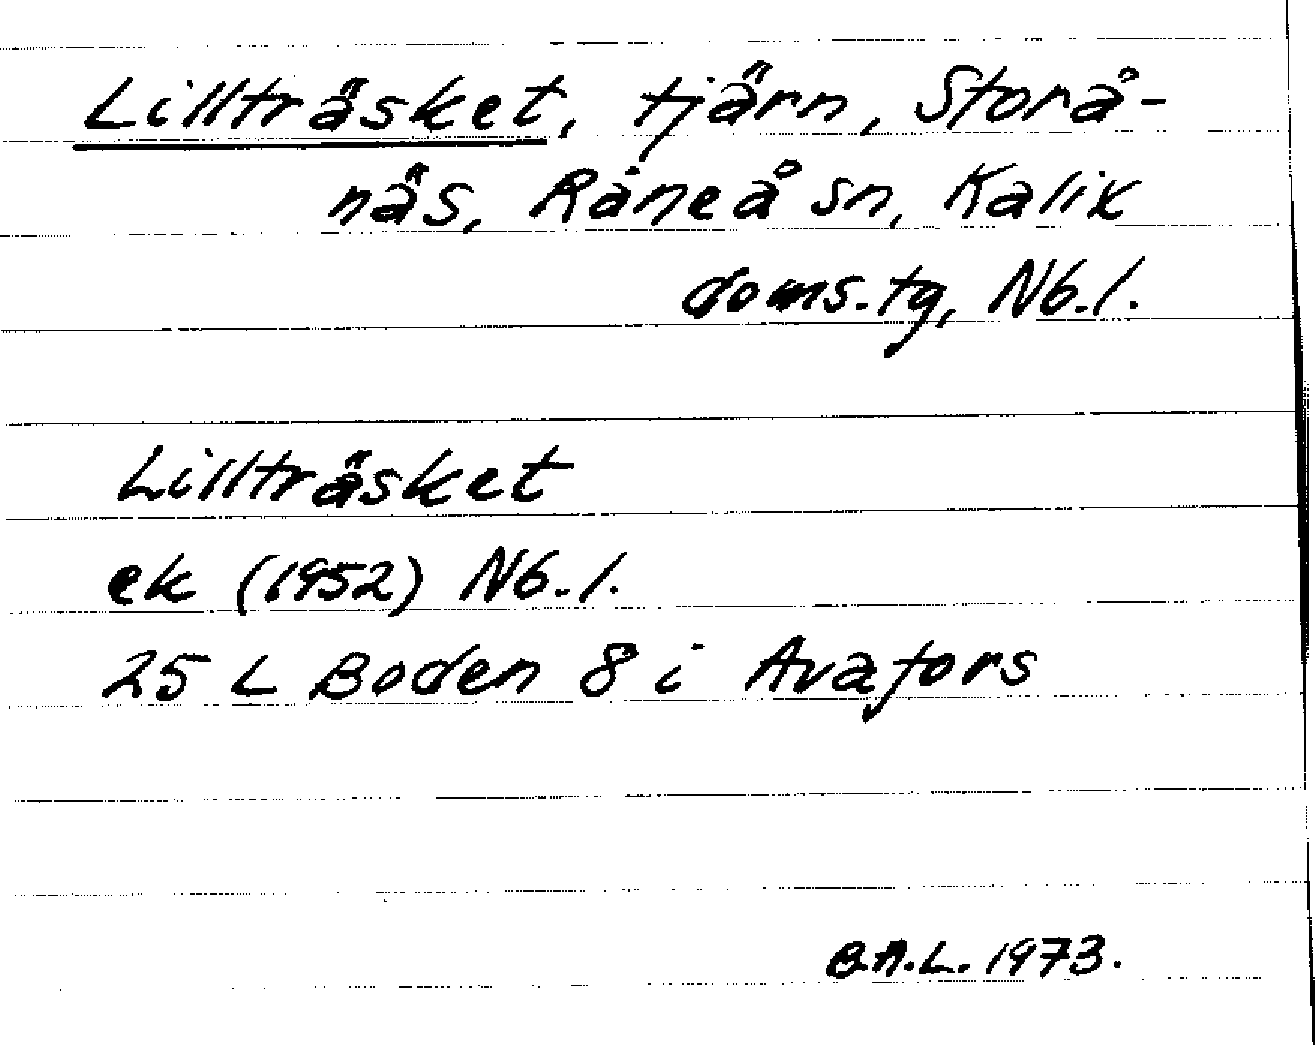 Lillträsket, tjärn, Storå-
näs, Råneå sn, Kalix
doms.tg, Nb.l.
Lillträsket
ek (1952) Nb.l.
25 L Boden 8 i Avafors
B.A.L. 1973.